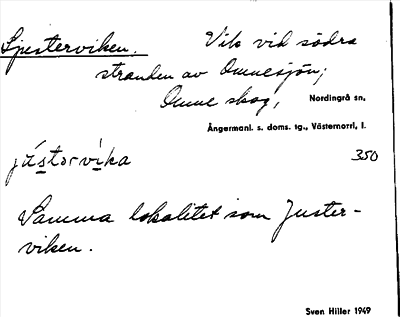 Ljusterviken. Vik vid södra
stranden av Omnesjön;
Omne skog, Nordingrå sn,
Ångermanl. s. doms. tg., Västernorrl. l.
jústorvika 350
Samma lokalitet som Juster-
viken.
Sven Hiller 1949